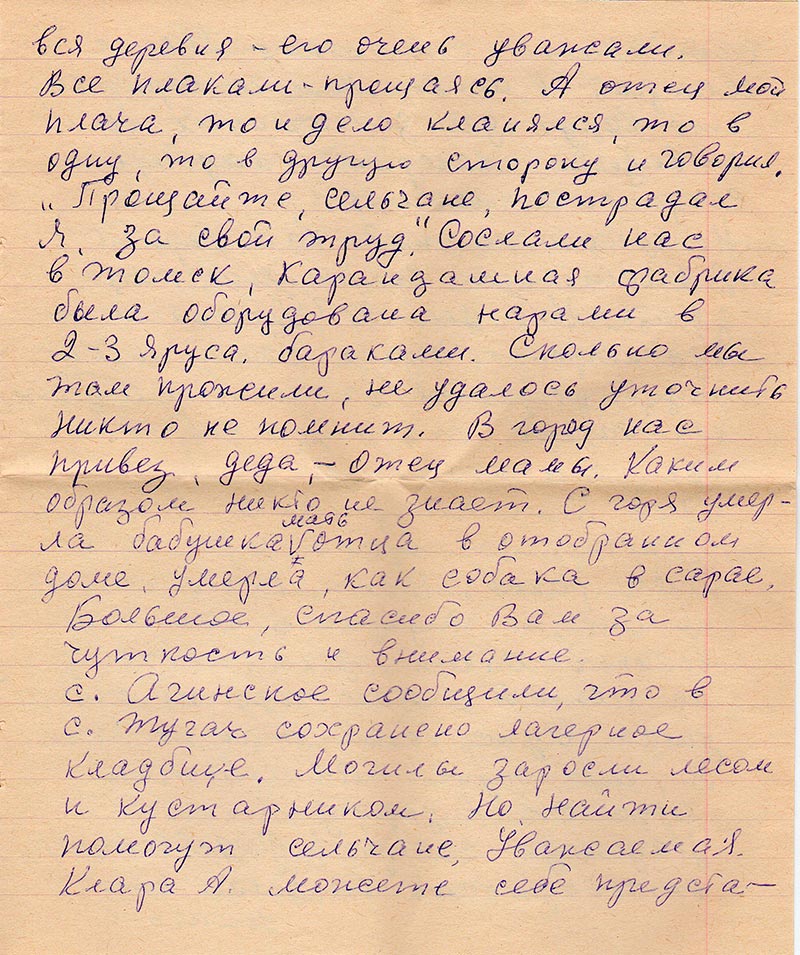 вся деревня – его очень уважали.
Все плакали – прощаясь. А отец мой
плача, то и дело кланялся, то в
одну, то в другую сторону и говорил.
„Прощайте, сельчане, пострадал
я, за свой труд." Сослали нас
в Томск, Карандашная фабрика
была оборудована нарами в
2-3 яруса. бараками. Сколько мы
там прожили, не удалось уточнить
никто не помнит. В город нас
привез, деда, – отец мамы. Каким
образом никто не знает. С горя умер-
мать
ла бабушка √ отца в отобранном
доме, умерла, как собака в сарае.
Большое, спасибо Вам за
чуткость и внимание.
с. Агинское сообщили, что в
с. Тугач сохранено лагерное
кладбище. Могилы заросли лесом
и кустарником. Но найти
помогут сельчане, Уважаемая.
Клара А. можете себе предста-